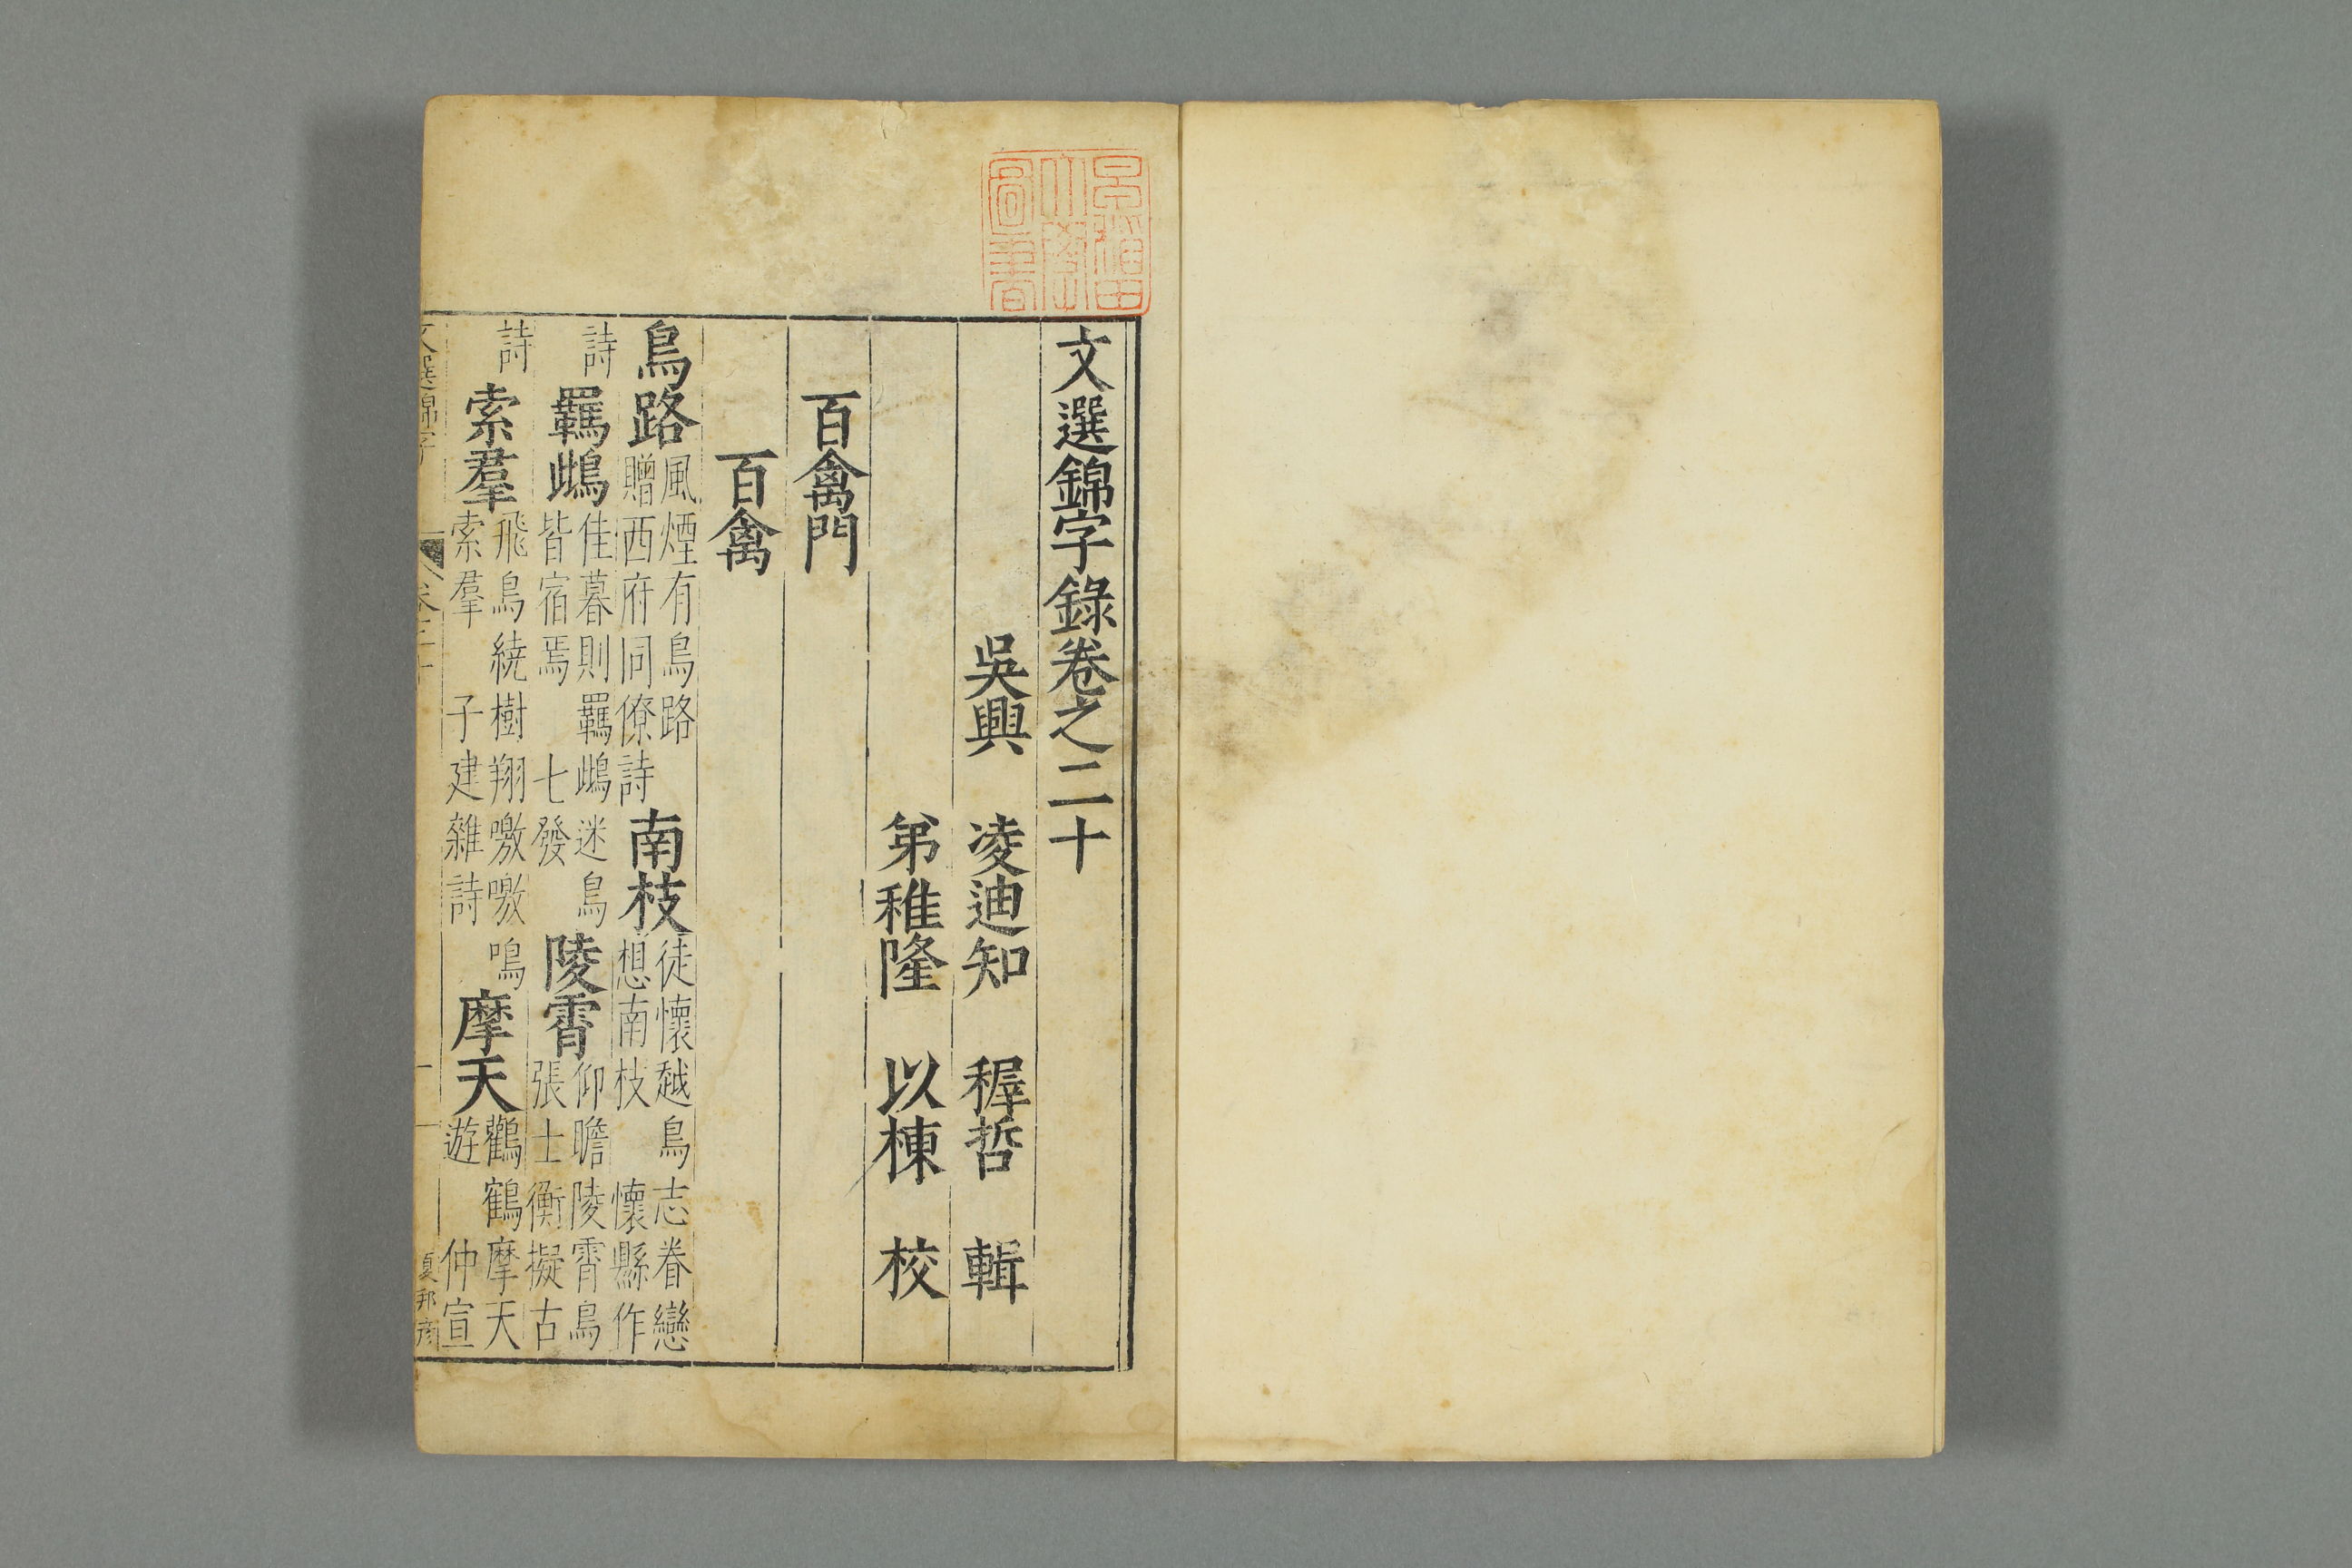 早稲田大學圖書
文選錦字錄卷之二十
吳興 凌迪知 穉哲 輯
弟稚隆 以棟 校
百禽門
百禽
鳥路風煙有鳥路贈西府同僚詩 南枝徒懷越鳥志眷戀想南枝 懷縣作
詩 羈鴟佳暮則羈鴟迷鳥皆宿焉 七發 陵霄仰瞻陵霄鳥張士衡擬古
詩 索羣飛鳥繞樹翔噭噭鳴索羣 子建雜詩 摩天鸛鶴摩天遊 仲宣
文選錦字 卷二十 一 夏邦彥